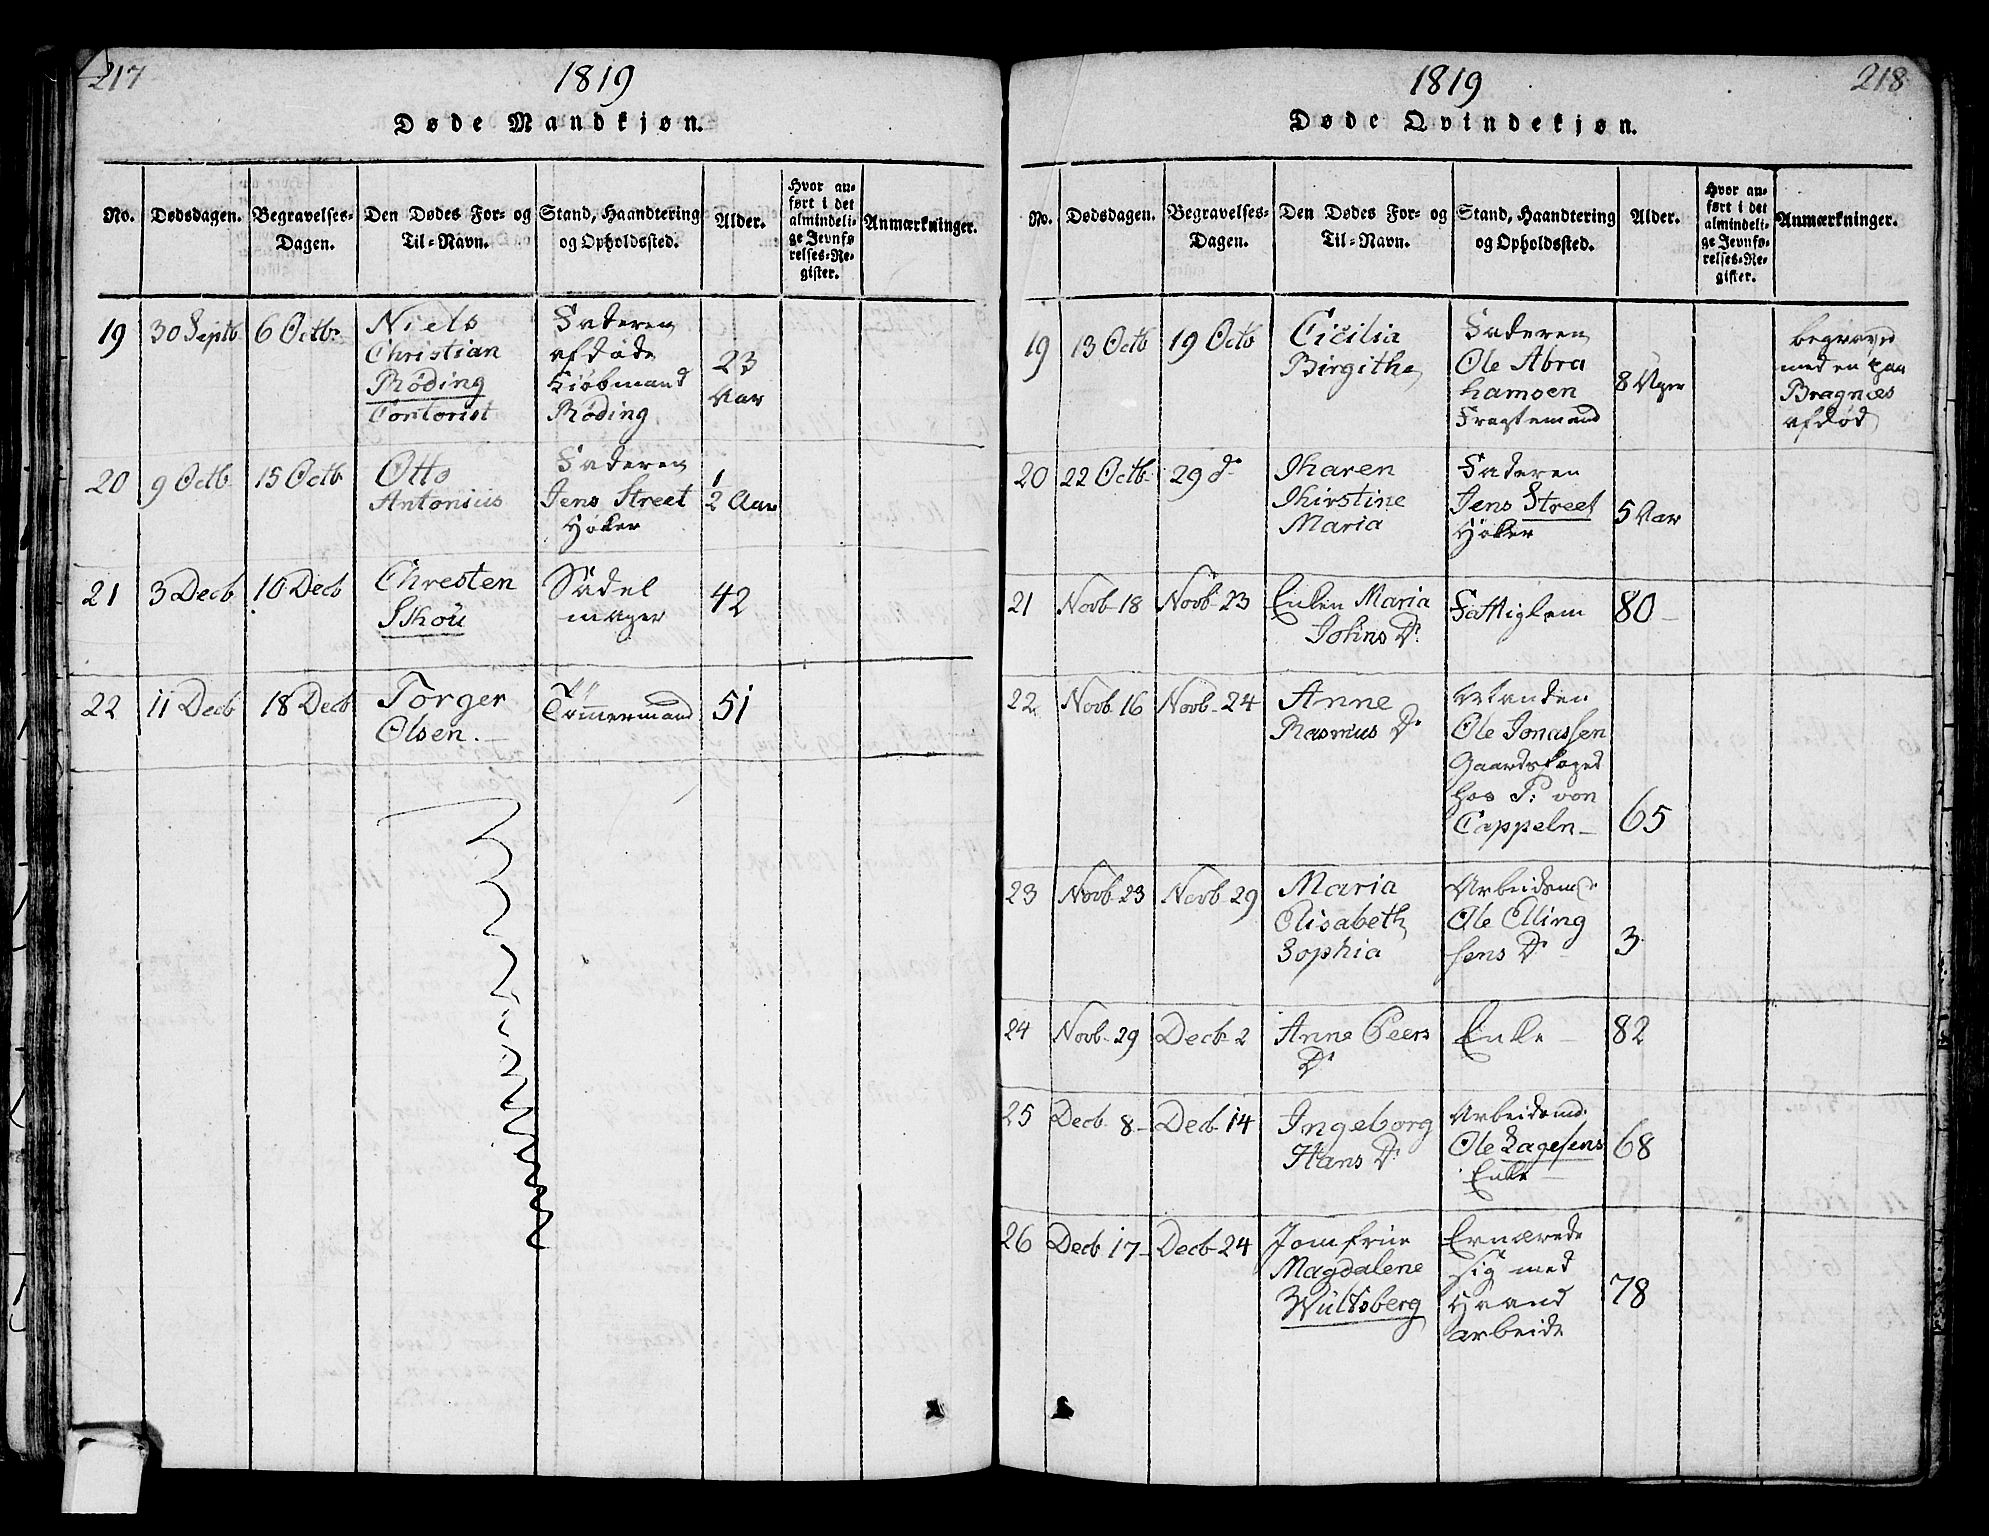 217
1819
Døde Mandkjøn.
No. Dødsdagen. Begravelses-Dagen. Den Dødes For- og Til-Navn. Stand, Haandtering og Opholdssted. Alder. Hvor anført i det almindelige Jevnførelses-Register. Anmærkninger.
19 30 Septb. 6 Octbr Niels Faderen
Christian afdøde 23
Röding Kiøbmand Aar
Contorist Röding
20 9 Octb 15 Octb Otto Faderen
Antonius Jens Street 1/2 Aar
Høker
21 3 Decb 10 Decb Chresten Sadel 42
Skou mager
22 11 Decb 18 Decb Torger Tømmermand 51
Olsen.
218
1819
Døde Qvindekjøn.
No. Dødsdagen. Begravelses-Dagen. Den Dødes For- og Til-Navn. Stand, Haandtering og Opholdssted. Alder. Hvor anført i det almindelige Jevnførelses-Register. Anmærkninger.
19 13 Octb 19 Octb Cicilia Faderen begravet
Birgithe Ole Abra 8 Uger med en paa
hamsen Bragnæs
Fragtemand afdød
20 22 Octb. 29 do Karen Faderen
Kirstine Jens Street 5 Aar
Maria Høker
21 Novb 18 Novb 23 Enken Maria Fattiglem 80
Johns Dr
22 Novb 16 Novb 24 Anne Manden
Rasmus Dr Ole Jonassen
Gaardskaged
hos P: von
Cappeln 65
23 Novb 23 Novb 29 Maria Arbeidsmd
Elisabeth Ole Elling
Sophia sens Dr 3
24 Novb 29 Decb 2 Anne Peers Enke 82
Dr
25 Decb 8 Decb 14 Ingeborg Arbeidsmd.
Hans Dr Ole Lagesens 68
Enke
26 Decb 17 Decb 24 Jomfrue Ernærede
Magdalene sig med
Wultsberg Haand 78
arbeide